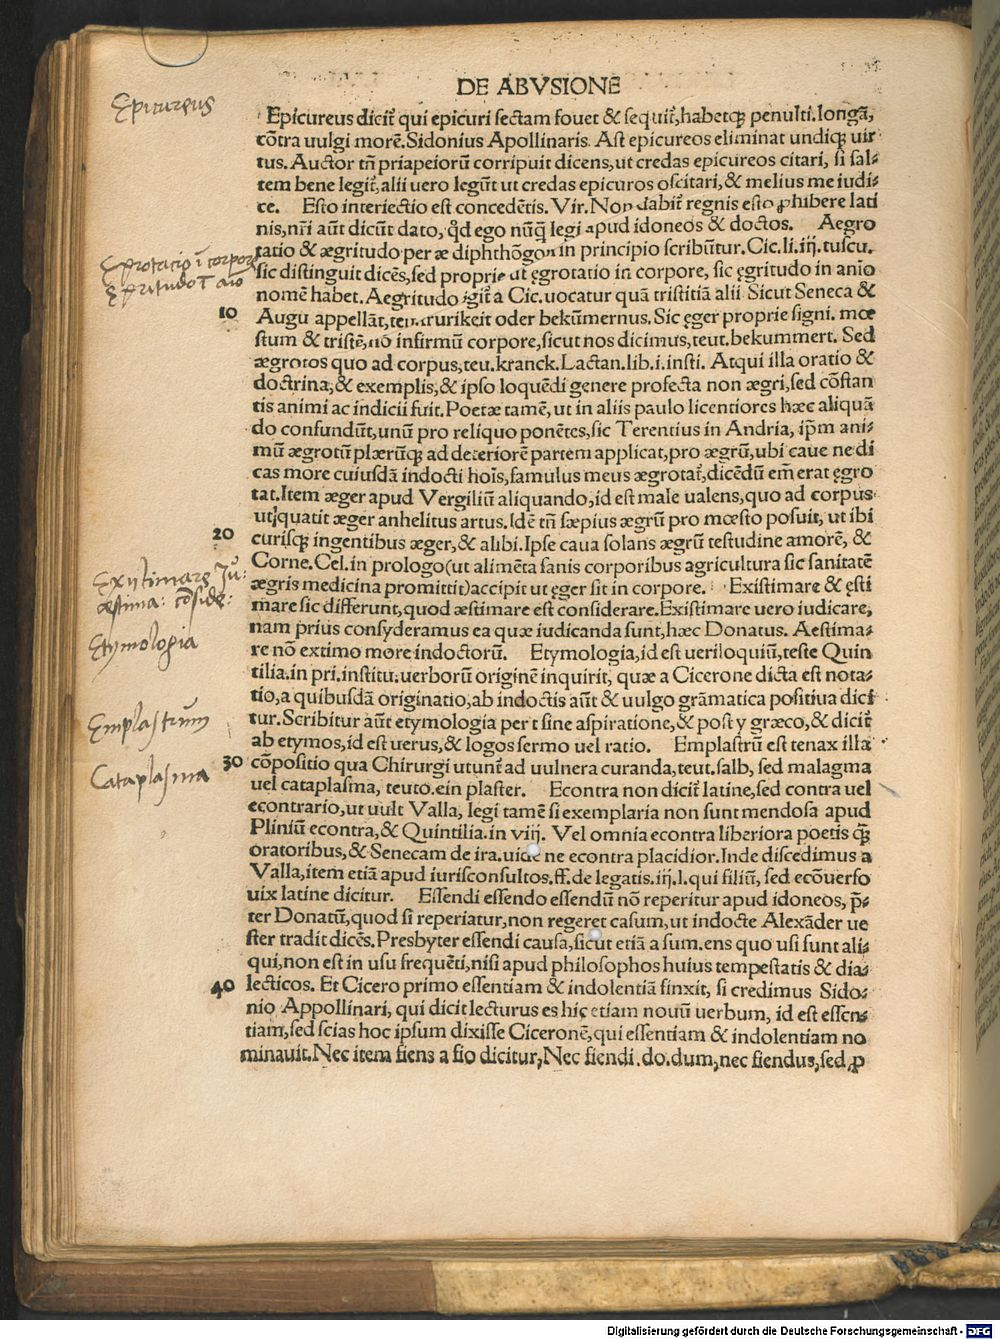 DE ABVSIONE
Epicureus
Epicureus dicit̄ qui epicuri sectam fouet & sequit̄, habetq; penulti. longā,
cōtra uulgi morē. Sidonius Apollinaris. Ast epicureos eliminat undiq; uir
tus. Auctor tn̄ priapeiorū corripuit dicens, ut credas epicureos citari, si sal-
tem bene legit̄, alii uero legūt ut credas epicuros oscitari, & melius me iudi-
ce. Esto interiectio est concedētis. Vir. Non dabit̄ regnis esto ꝓhibere lati
nis, nr̄i aūt dicūt dato, qd̄ ego nūq̄ legi apud idoneos & doctos. Aegro
tatio & ægritudo per æ diphthōgon in principio scribūtur. Cic. li. iij. tuscu.
Egrotacio ī corpore
sic distinguit dicēs, sed proprie ut ęgrotatio in corpore, sic ęgritudo in anīo
Egritudo ī aīo
nomē habet. Aegritudo igit̄ a Cic. uocatur quā tristitiā alii Sicut Seneca &
10 Augu appellāt, teu. trurikeit oder bekūmernus. Sic ęger proprie signi. moe
stum & tristē, nō infirmū corpore, sicut nos dicimus, teut. bekummert. Sed
ægrotos quo ad corpus, teu. kranck. Lactan. lib. i. insti. Atqui illa oratio &
doctrina, & exemplis, & ipso loquēdi genere profecta non ægri, sed cōstan
tis animi ac indicii fuit. Poetæ tamē, ut in aliis paulo licentiores hæc aliquā
do confundūt, unū pro reliquo ponētes, sic Terentius in Andria, ip̄m ani-
mū ægrotū plærūq; ad deteriorē partem applicat, pro ægrū, ubi caue ne di
cas more cuiusdā indocti hoīs, famulus meus ægrotat̄, dicēdū em̄ erat ęgro
tat. Item æger apud Vergiliū aliquando, id est male ualens, quo ad corpus
ut, quatit æger anhelitus artus. Idē tn̄ sæpius ægrū pro moesto posuit, ut ibi
20 curisq; ingentibus æger, & alibi. Ipse caua solans ægrū testudine amorē, &
Corne. Cel. in prologo (ut alimēta sanis corporibus agricultura sic sanitatē
Existimare Iu:
ægris medicina promittit) accipit ut ęger sit in corpore. Existimare & ęsti
æstima: cōside:
mare sic differunt, quod æstimare est considerare. Existimare uero iudicare,
nam prius consyderamus ea quæ iudicanda sunt, hæc Donatus. Aestima-
Etymologia
re nō extimo more indoctorū. Etymologia, id est ueriloquiū, teste Quin
tilia. in pri. institu. uerborū originē inquirit, quæ a Cicerone dicta est nota-
tio, a quibusdā originatio, ab indoctis aūt & uulgo grāmatica positiua dici
Emplastrum
tur. Scribitur aūt etymologia per t sine aspiratione, & post y græco, & dicit̄
ab etymos, id est uerus, & logos sermo uel ratio. Emplastrū est tenax illa
Cataplasma
30 cōpositio qua Chirurgi utunt̄ ad uulnera curanda, teut. salb, sed malagma
uel cataplasma, teuto. ein plaster. Econtra non dicit̄ latine, sed contra uel
econtrario, ut uult Valla, legi tamē si exemplaria non sunt mendosa apud
Pliniū econtra, & Quintilia. in viij. Vel omnia econtra liberiora poetis q̄;
oratoribus, & Senecam de ira. uide ne econtra placidior. Inde discedimus a
Valla, item etiā apud iurisconsultos. ff. de legatis. iij. l. qui filiū, sed ecōuerso
uix latine dicitur. Essendi essendo essendū nō reperitur apud idoneos, p̄-
ter Donatū, quod si reperiatur, non regeret casum, ut indocte Alexāder ue
ster tradit dicēs. Presbyter essendi causa, sicut etiā a sum. ens quo usi sunt ali-
qui, non est in usu frequēti, nisi apud philosophos huius tempestatis & dia-
40 lecticos. Et Cicero primo essentiam & indolentiā finxit, si credimus Sido-
nio Appollinari, qui dicit lecturus es hic etiam nouū uerbum, id est essen-
tiam, sed scias hoc ipsum dixisse Ciceronē, qui essentiam & indolentiam no
minauit. Nec item fiens a fio dicitur, Nec fiendi. do. dum, nec fiendus, sed ꝓ
Digitalisierung gefördert durch die Deutsche Forschungsgemeinschaft - DFG